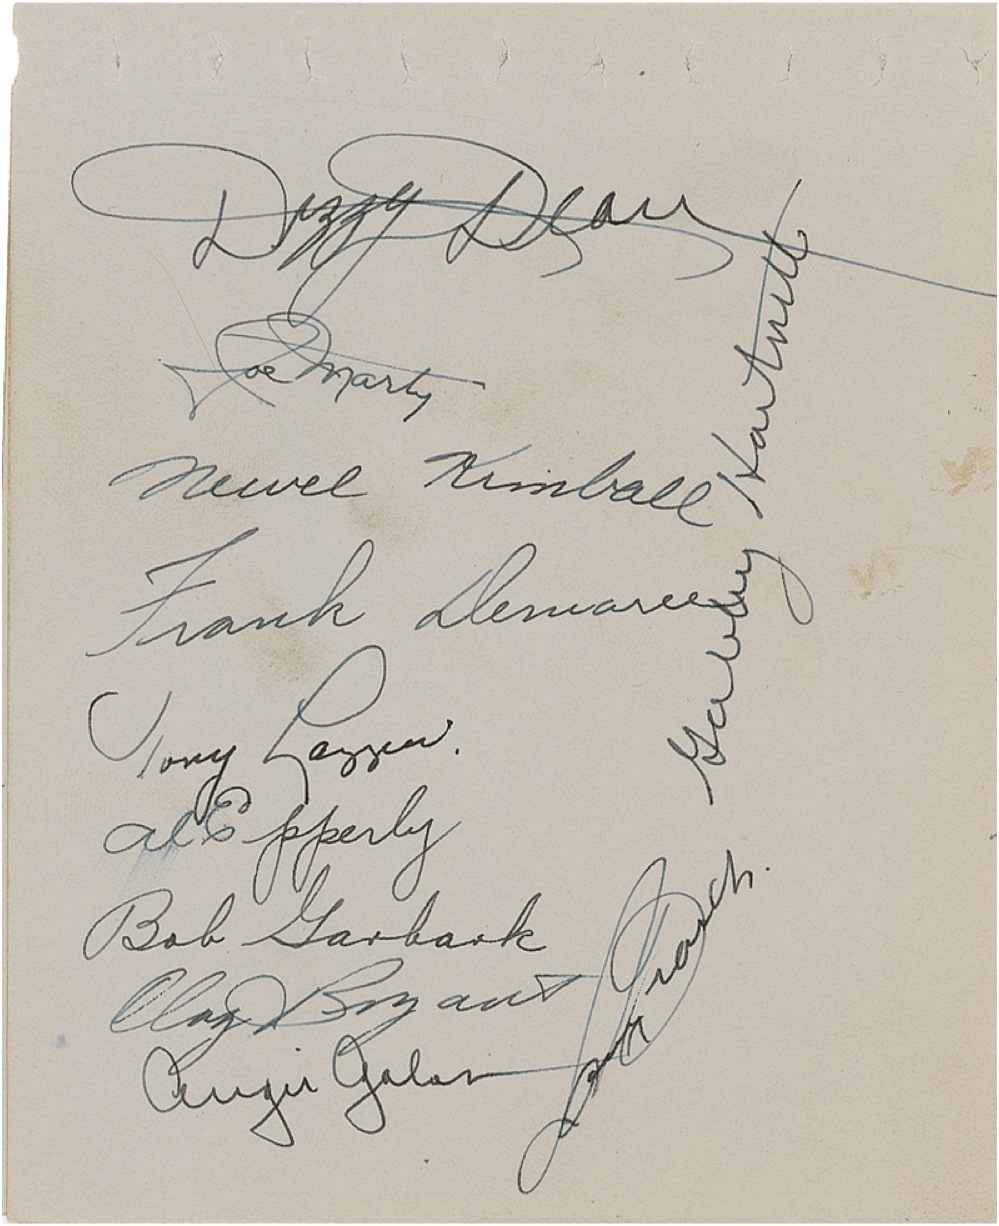 Dizzy Dean
Joe Marty
Newel Kimball
Frank Demaree
Tony Lazzeri.
Al Epperly
Bob Garbark
Clay Bryant
Augie Galan
Gabby Hartnett